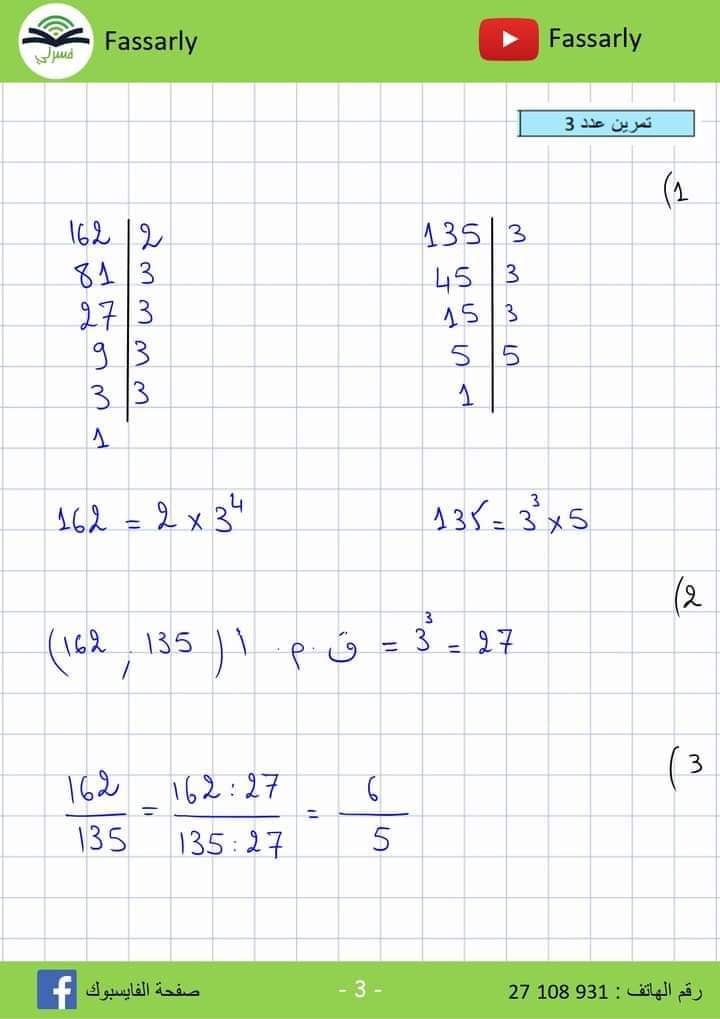 Fassarly
فسرلي
Fassarly
تمرين عدد 3
1)
162 | 2
81 | 3
27 | 3
9 | 3
3 | 3
1
135 | 3
45 | 3
15 | 3
5 | 5
1
162 = 2 × 3⁴
135 = 3³ × 5
2)
(162 ; 135) ق . م . أ = 3³ = 27
3)
162/135 = 162:27/135:27 = 6/5
صفحة الفايسبوك
- 3 -
رقم الهاتف : 27 108 931